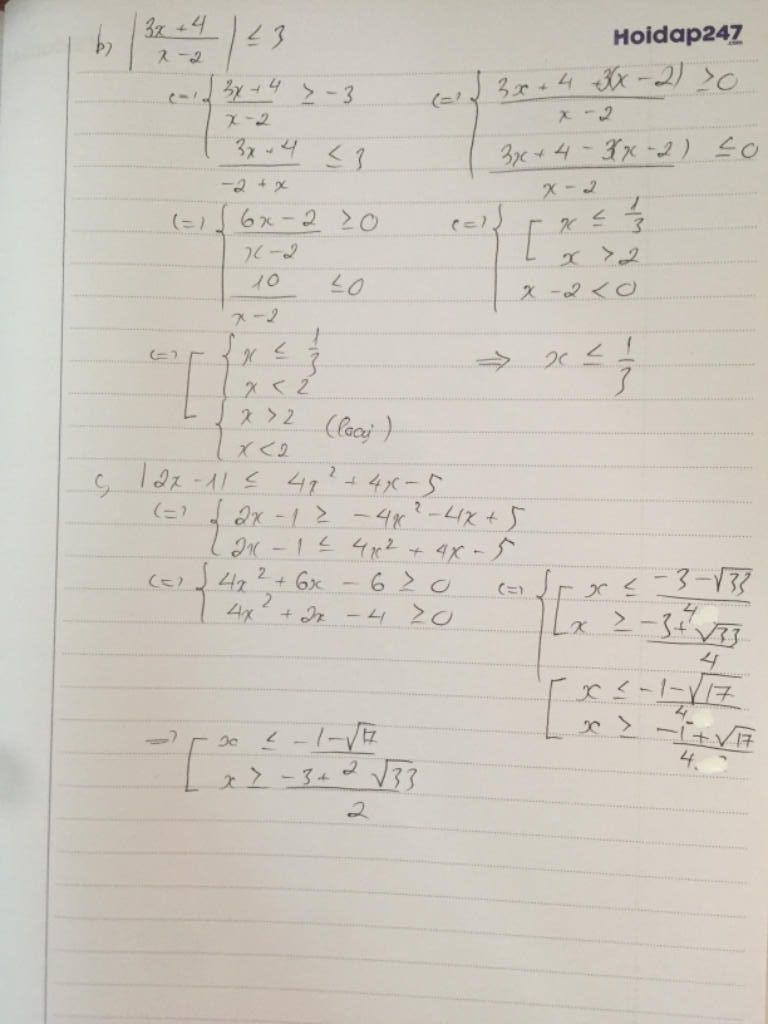 Hoidap247
.com
b, |(3x+4)/(x-2)| ≤ 3
(=) { (3x+4)/(x-2) ≥ -3
(3x+4)/(-2+x) ≤ 3
(=) { (3x+4+3(x-2))/(x-2) ≥ 0
(3x+4-3(x-2))/(x-2) ≤ 0
(=) { (6x-2)/(x-2) ≥ 0
10/(x-2) ≤ 0
(=) { [ x ≤ 1/3
x > 2
x-2 < 0
(=) [ { x ≤ 1/3
x < 2
{ x > 2
x < 2 (loại)
=> x ≤ 1/3
c, |2x-1| ≤ 4x² + 4x - 5
(=) { 2x-1 ≥ -4x² - 4x + 5
2x-1 ≤ 4x² + 4x - 5
(=) { 4x² + 6x - 6 ≥ 0
4x² + 2x - 4 ≥ 0
(=) { [ x ≤ (-3-√33)/4
x ≥ (-3+√33)/4
[ x ≤ (-1-√17)/4
x ≥ (-1+√17)/4
=> [ x ≤ (-1-√17)/2
x ≥ (-3+√33)/2